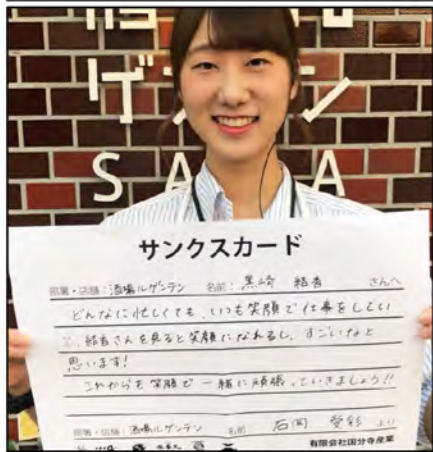 ゲンテン
SA A
サンクスカード
部署・店舗：酒場ルゲンテン 名前：黒崎 結香 さんへ
どんなに忙しくても、いつも笑顔で仕事をしてい
る 結香さんを見ると笑顔になれるし、すごいなと
思います！
これからも笑顔で一緒に頑張っていきましょう!!
部署・店舗：酒場ルゲンテン 名前 石岡 愛彩 より
有限会社国分寺産業